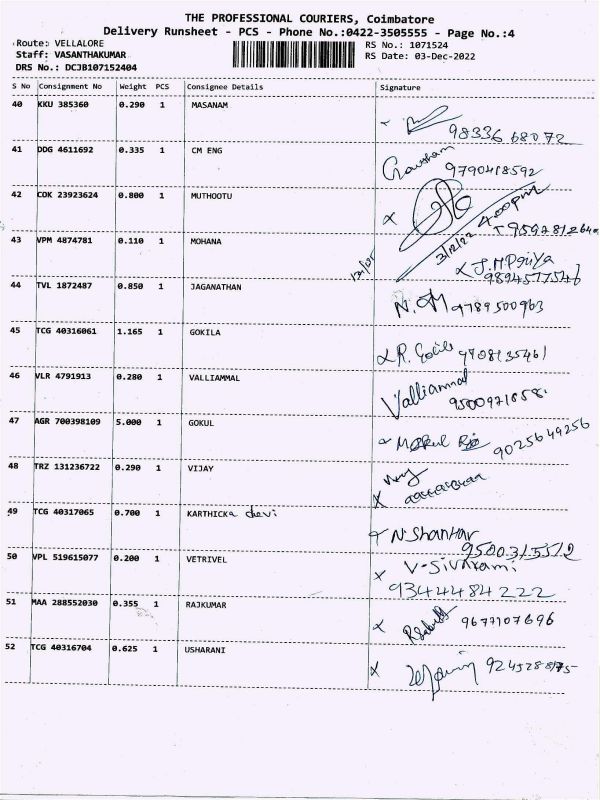 THE PROFESSIONAL COURIERS, Coimbatore
Delivery Runsheet - PCS - Phone No.:0422-3505555 - Page No.:4
Route: VELLALORE RS No.: 1071524
Staff: VASANTHAKUMAR RS Date: 03-Dec-2022
DRS No.: DCJB107152404
S No Consignment No Weight PCS Consignee Details Signature
40 KKU 385360 0.290 1 MASANAM
98336 68072
41 DDG 4611692 0.335 1 CM ENG
9790418592
42 COK 23923624 0.800 1 MUTHOOTU
3/12/22 4.00pm
43 VPM 4874781 0.110 1 MOHANA
44 TVL 1872487 0.850 1 JAGANATHAN
9789500963
45 TCG 40316061 1.165 1 GOKILA
46 VLR 4791913 0.280 1 VALLIAMMAL
Valliammal
47 AGR 700398109 5.000 1 GOKUL
9025649256
48 TRZ 131236722 0.290 1 VIJAY
49 TCG 40317065 0.700 1 KARTHICKa devi
N Shankar
9500315512
50 VPL 519615077 0.200 1 VETRIVEL
V-Sivakami
9344484222
51 MAA 288552030 0.355 1 RAJKUMAR
9677107696
52 TCG 40316704 0.625 1 USHARANI